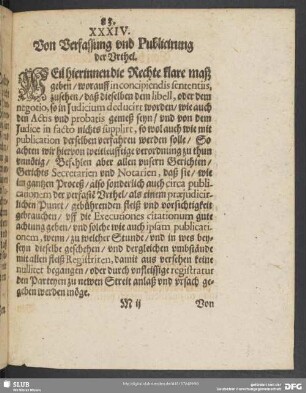 83.
XXXIV.
Von Verfassung vnd Publicirung
der Vrthel.
WEil hierinnen die Rechte klare maß
geben / worauff in concipiendis sententiis,
zusehen / daß dieselben dem libell, oder dem
negotio, so in Judicium deducirt worden / wie auch
den Actis vnd probatis gemeß seyn / vnd von dem
Judice in facto nichts supplirt, so wol auch wie mit
publication derselben verfahren werden solle / So
achten wir hiervon weitleufftige verordnung zu thun
vnnötig / Befehlen aber allen vnsern Gerichten /
Gerichts Secretarien vnd Notarien, daß sie / wie
im gantzen Proceß / also sonderlich auch circa publi-
cationem der verfaßte Vrthel / als einem præjudicir-
lichen Punct / gebührenden fleiß vnd vorsichtigkeit
gebrauchen / vff die Executiones citationum gute
achtung geben / vnd solche wie auch ipsam publicati-
onem, wenn / zu welcher Stunde / vnd in wes bey-
seyn dieselbe geschehen / vnd dergleichen vmbstände
mit allen fleiß Registriren, damit aus versehen keine
nullitet begangen / oder durch vnfleissige registratur
den Parteyen zu newen Streit anlaß vnd vrsach ge-
geben werden möge.
M ij Von
SLUB